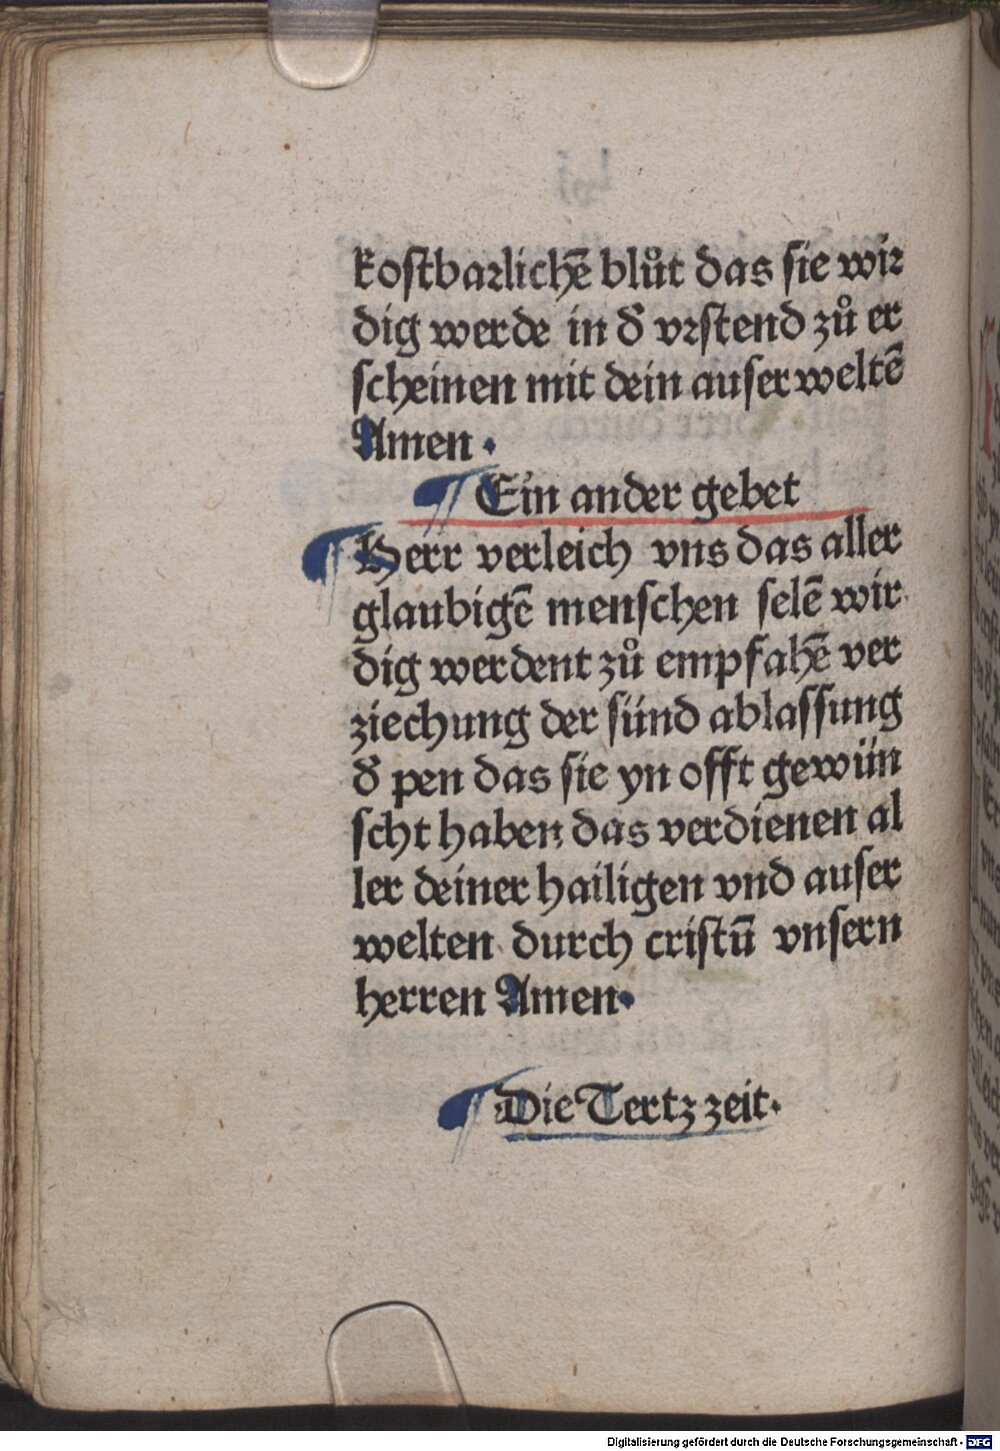 kostbarlichē blůt das sie wir
dig werde in đ vrstend zů er
scheinen mit dein auser weltē
Amen ·
¶ Ein ander gebet
¶ Herr verleich vns das aller
glaubigē menschen selē wir
dig werdent zů empfahē ver
ziechung der sünd ablassung
đ pen das sie yn offt gewün
scht haben das verdienen al
ler deiner hailigen vnd auser
welten durch cristū vnsern
herren Amen·
¶ Die Tertz zeit·
Digitalisierung gefördert durch die Deutsche Forschungsgemeinschaft - DFG